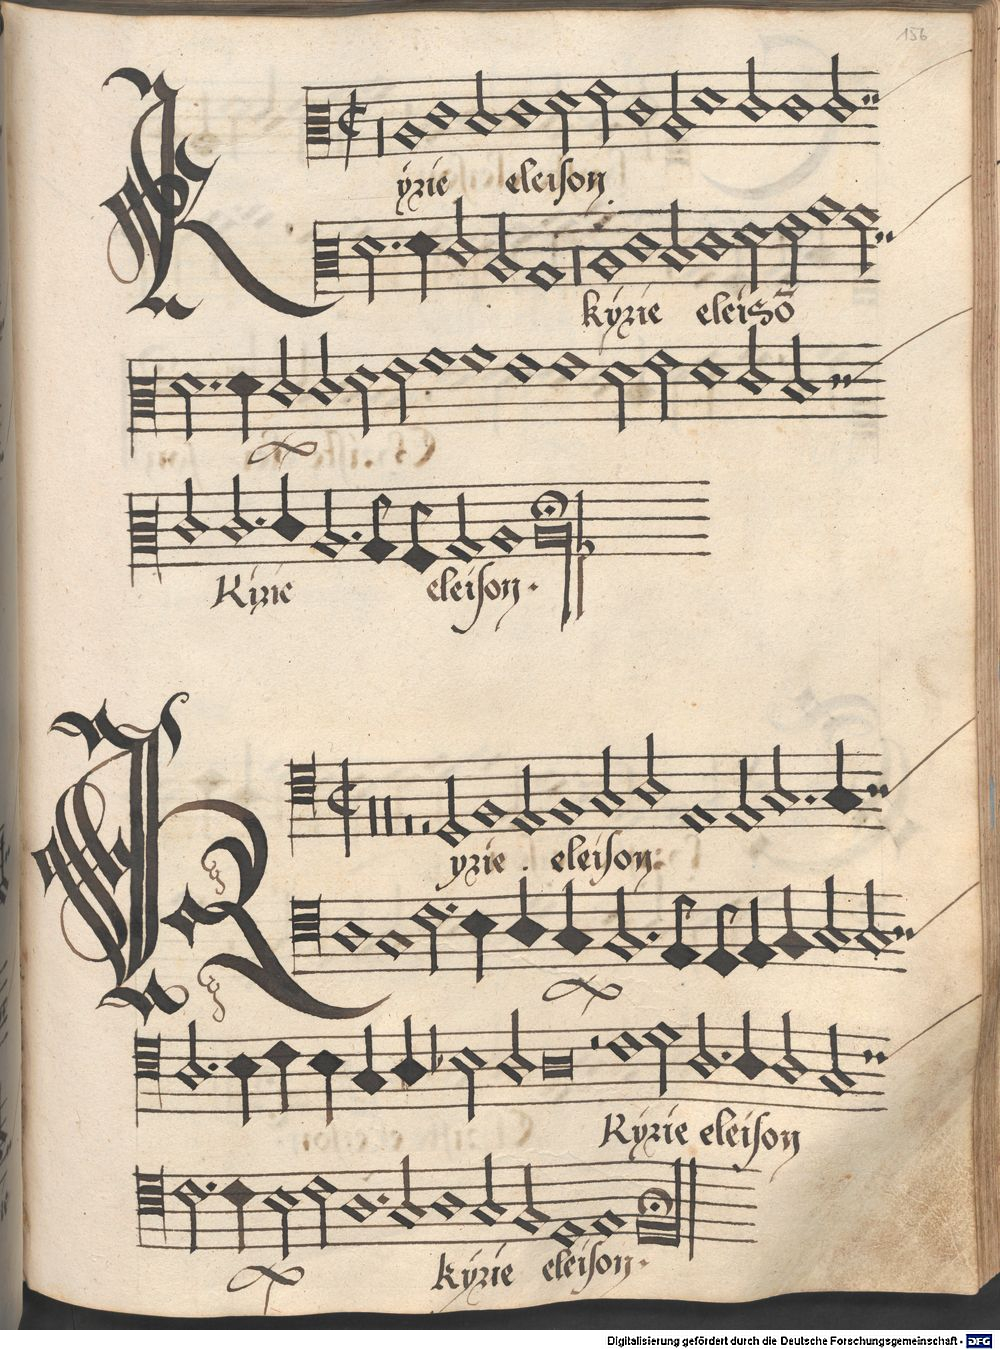 156
Kÿrie eleison
kÿrie eleisō
Kirie eleison.
Kyrie . eleison.
Kÿrie eleison
kÿrie eleison.
Digitalisierung gefördert durch die Deutsche Forschungsgemeinschaft - DFG